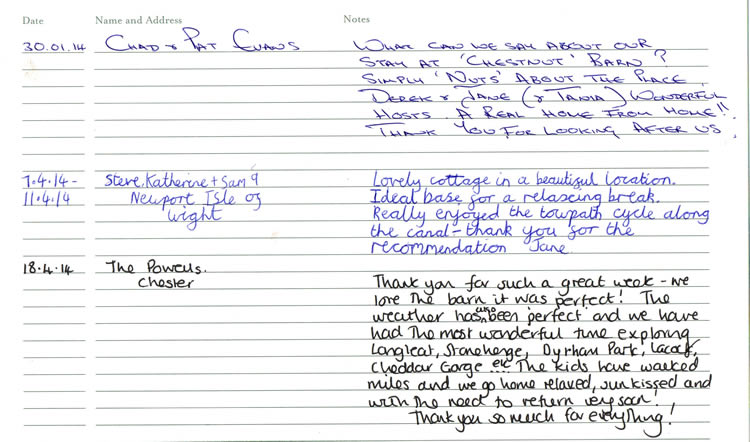 Date Name and Address Notes
30.01.14 CHAD & PAT EVANS WHAT CAN WE SAY ABOUT OUR
STAY AT 'CHESTNUT' BARN?
SIMPLY 'NUTS' ABOUT THE PLACE.
DEREK & JANE (& TANIA) WONDERFUL
HOSTS. A REAL HOME FROM HOME!!
THANK YOU FOR LOOKING AFTER US.
7.4.14 - Steve, Katherine + Sam 9 Lovely cottage in a beautiful location.
11.4.14 Newport Isle of Ideal base for a relaxing break.
wight Really enjoyed the towpath cycle along
the canal - thank you for the
recommendation Jane.
18.4.14 The Powells.
Chester Thank you for such a great week - we
love the barn it was perfect! The
weather has also been perfect and we have
had the most wonderful time exploring
Longleat, Stonehenge, Dyrham Park, Lacock,
Cheddar Gorge etc. The kids have walked
miles and we go home relaxed, sunkissed and
with the need to return very soon!
Thank you so much for everything!